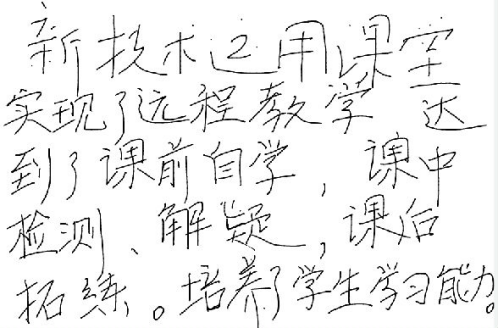 新技术运用课堂
实现了远程教学 达
到了课前自学，课中
检测、解疑，课后
拓练。培养了学生学习能力。